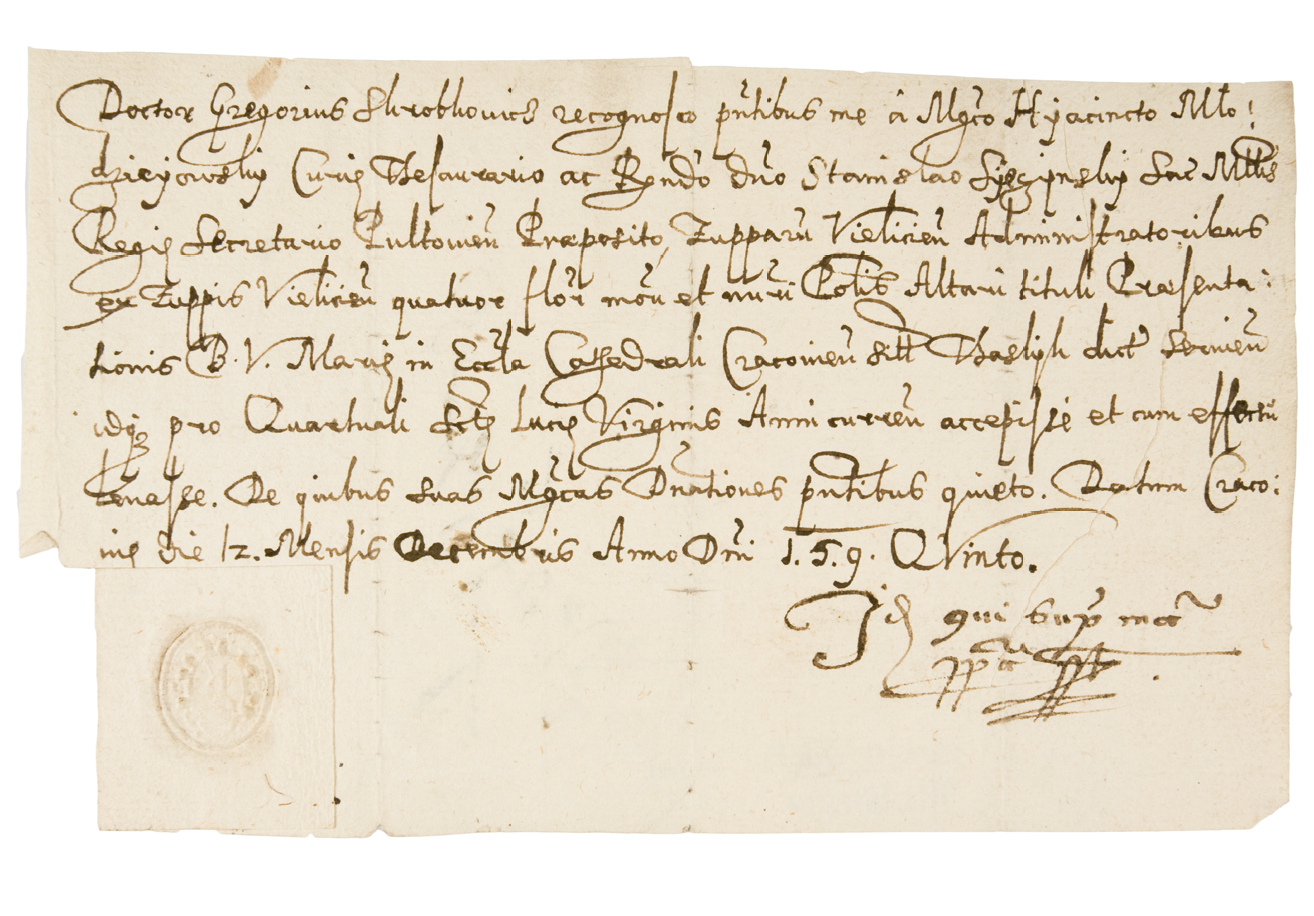 Doctor Gregorius Skrobkovicz recognosco pñtibus me à Mgco Hyacincto Mło:
dzieyowsky Curię Thesaurario ac Rndo dno Stanislao Sac Mttis
Regię Secretario Pultovień Præposito, Zupparū Vielicień Administratoribus
ex Zuppis Vielicień quatuor flor moñ et nuri Polis Altari tituli Præsenta:
tionis B. V. Marię in Eccla Cathedrali Cracovień sitt dict servień
idq3 pro Quartuali Sctę Lucię Virginis Anni curreñ accepisse et cum effectu
levasse. De quibus suas Mgcas Dnationes pñtibus quieto. Datum Craco:
vię die 12. Mensis Decembris Anno Dni 1.5.9. QVinto.
Idē qui supr mca